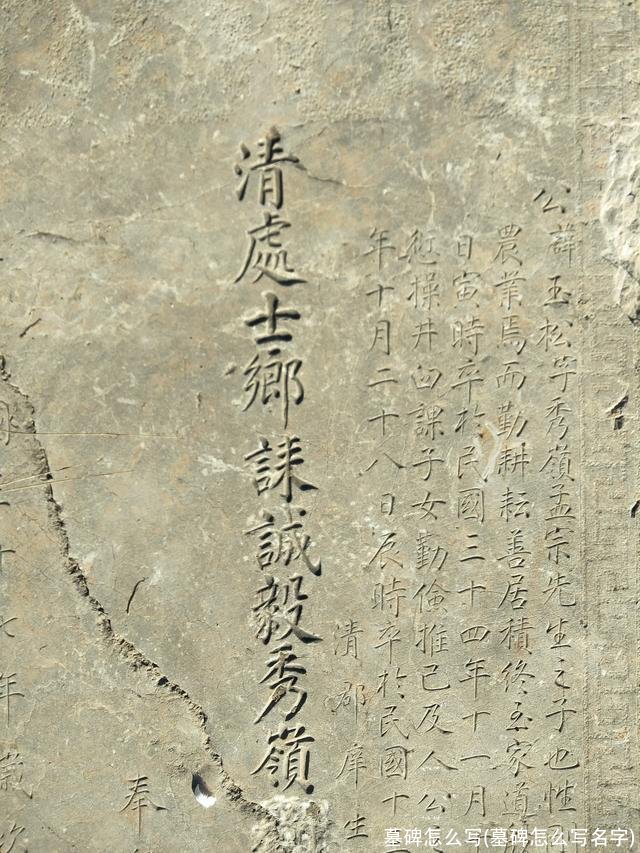 公諱玉松字秀嶺孟宗先生之子也性
農業焉而勤耕耘善居積終至家道
日寅時卒於民國三十四年十一月
操井臼課子女勤儉推己及人公
年十月二十八日辰時卒於民國十
清郡庠生
清處士鄉誄誠毅秀嶺
奉
十七年歲次
墓碑怎么写(墓碑怎么写名字)